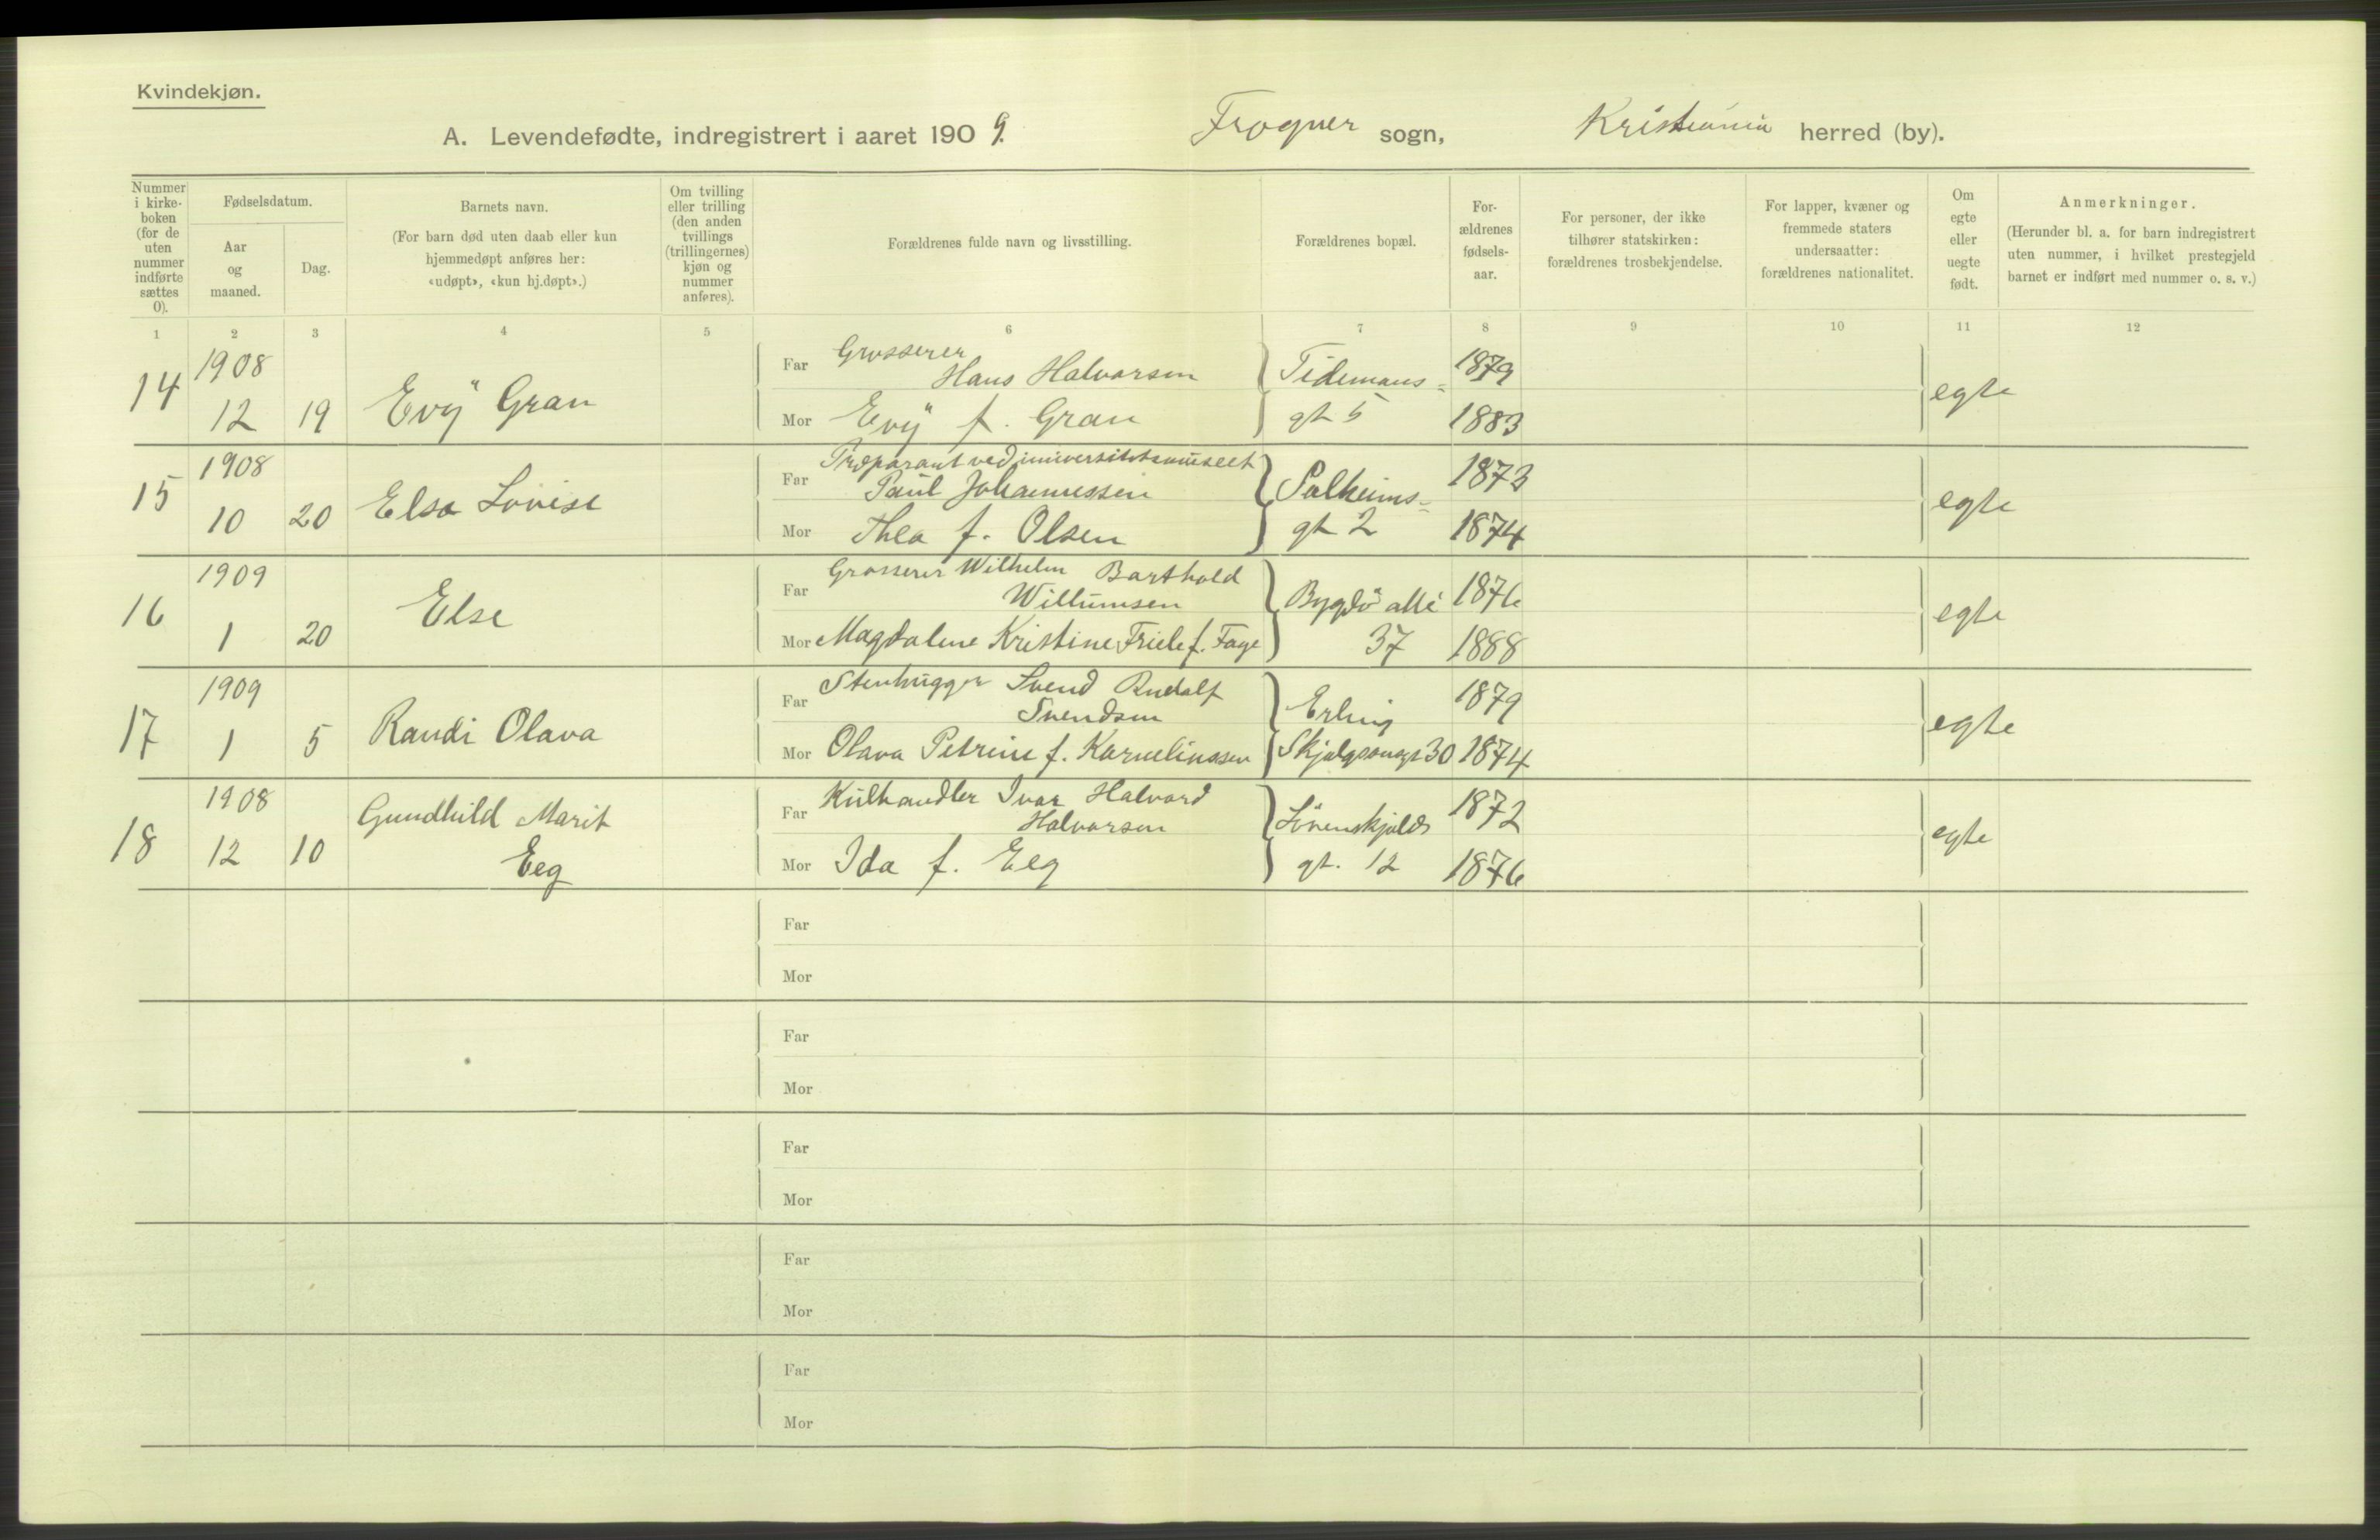 Kvindekjøn.
A. Levendefødte, indregistrert i aaret 1909. Frogner sogn, Kristiania herred (by).
Nummer i kirke-boken (for de uten nummer indførte sættes 0).
Fødselsdatum.
Aar og maaned.
Dag.
Barnets navn.
(For barn død uten daab eller kun hjemmedøpt anføres her: «udøpt», «kun hj.døpt».)
Om tvilling eller trilling (den anden tvillings (trillingernes) kjøn og nummer anføres).
Forældrenes fulde navn og livsstilling.
Forældrenes bopæl.
For-ældrenes fødsels-aar.
For personer, der ikke tilhører statskirken: forældrenes trosbekjendelse.
For lapper, kvæner og fremmede staters undersaatter: forældrenes nationalitet.
Om egte eller uegte født.
Anmerkninger.
(Herunder bl. a. for barn indregistrert uten nummer, i hvilket prestegjeld barnet er indført med nummer o. s. v.)
1 2 3 4 5 6 7 8 9 10 11 12
14 1908 12 19 Evÿ Gran
Far Grosserer Hans Halvorsen Tidemans- 1879 egte
Mor Evÿ f. Gran gt 5 1883
15 1908 10 20 Elsa Lovise
Far Præparant ved universitetsmuseet Paul Johannessen Solheims- 1873 egte
Mor Thea f. Olsen gt 2 1874
16 1909 1 20 Else
Far Grosserer Wilhelm Barthold Willumsen Bygdö allé 1876 egte
Mor Magdalene Kristine Friele f. Faye 37 1888
17 1909 1 5 Randi Olava
Far Stenhugger Svend Rudolf Svendsen Erling 1879 egte
Mor Olava Petrine f. Kornelinssen Skjalgsonsgt 30 1874
18 1908 12 10 Gundhild Marit Eeg
Far Kulhandler Ivar Halvard Halvorsen Lövenskjolds 1872 egte
Mor Ida f. Eeg gt. 12 1876
Far
Mor
Far
Mor
Far
Mor
Far
Mor
Far
Mor